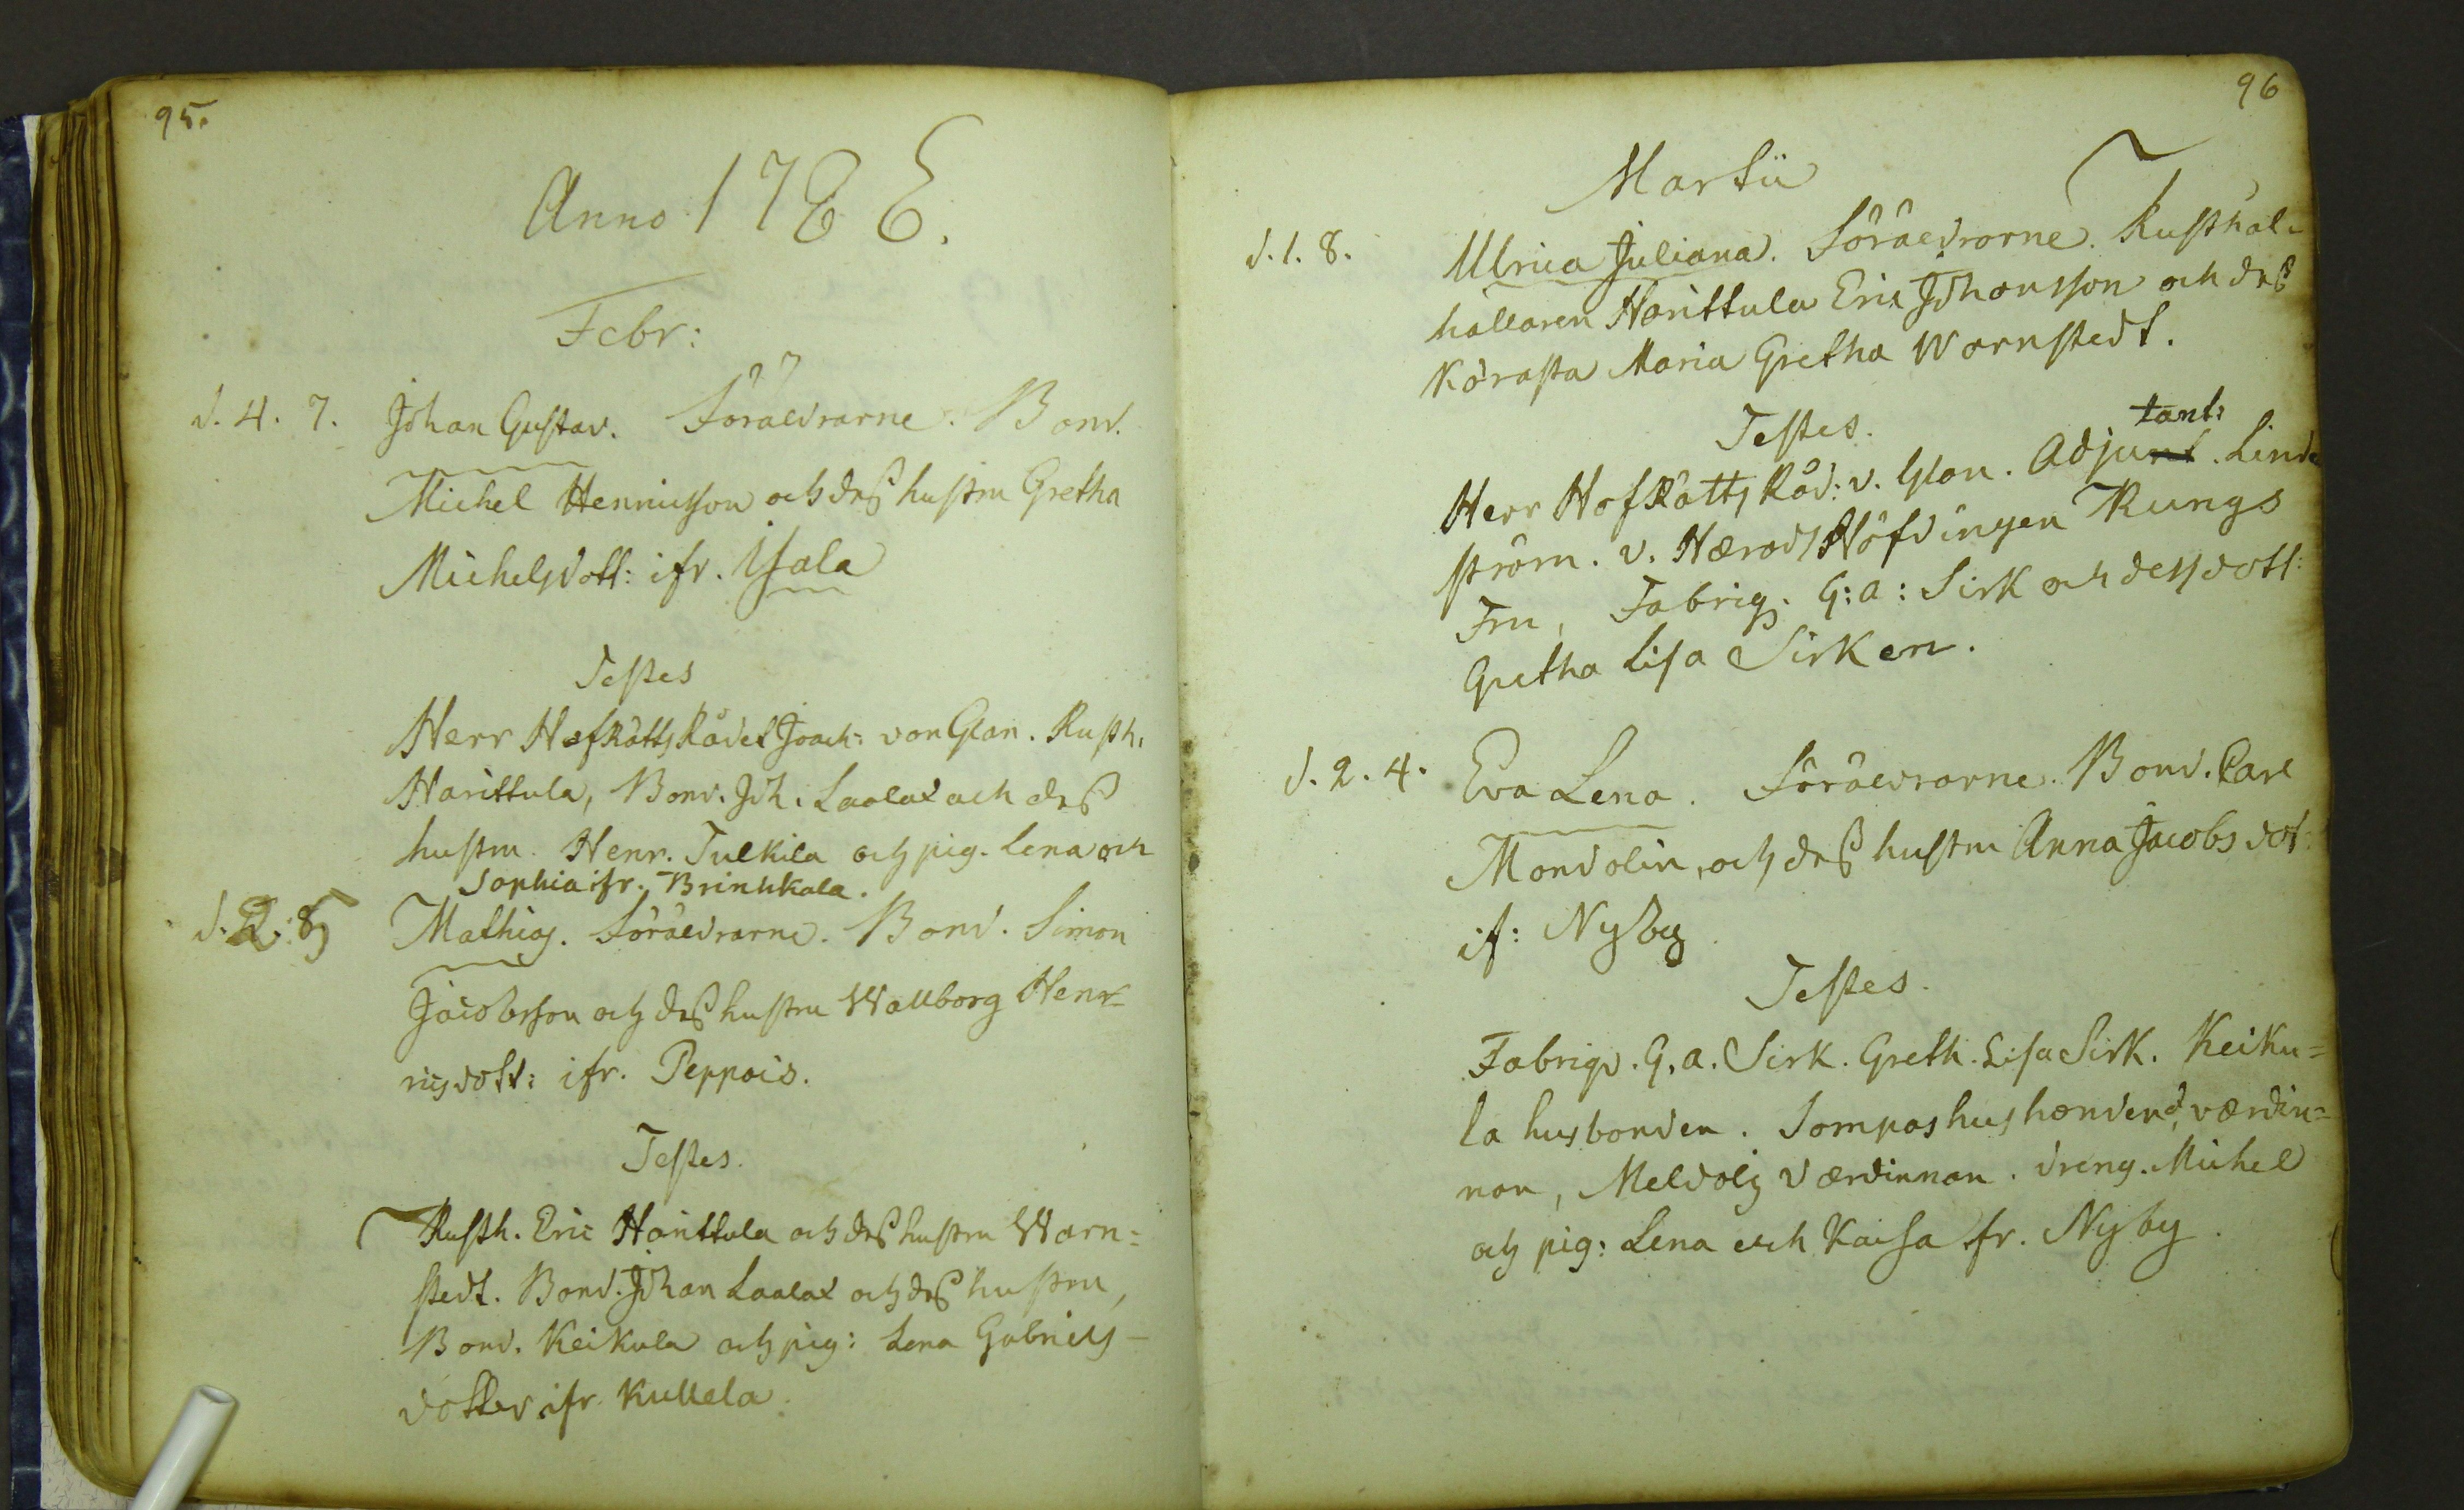 95.
Anno 1788.
Febr:
d. 4. 7. Johan Gustav. Föräldrarne. Bond.
Michel Hennricsson och dess hustru Gretha
Michelsdott: ifr. Isala
Testes
Herr HofRätts Rådet Joach: von Glan. Rusth.
Harittula, Bond. Joh. Laalax och dess
hustru. Henr. Tulkila och pig. Lena och
Sophia ifr. Brinkkala.
d. 2. 8 Mathias. Föräldrarne. Bond. Simon
Jacobsson och dess hustru Wallborg Hen=
ricsdott: ifr. Peppois.
Testes.
Rusth. Eric Harittula och dess hustru Warn=
stedt. Bond. Johan Laalax och dess hustru,
Bond. Keikula och pig: Lena Gabriels-
dotter ifr. Kullela.
96
Martii
d. 1. 8. Ulrica Juliana. Föräldrarne. Rusthål-
hållaren Harittula Eric Johansson och dess
Kärasta Maria Gretha Warnstedt.
Testes.
tant:
Herr HofRätts Råd: v. Glan. Adjunt. Linde
ström. v. HäradsHöfdingen Rungs
Fru, Fabriq. G: A: Sirk och dess dott:
Gretha Lisa Sirken.
d. 2. 4. Eva Lena. Föräldrarne. Bond. Carl
Mondolin, och dess hustru Anna Jacobs dot:
if: Nyby
Testes.
Fabriqv. G. A. Sirk. Greth. Lisa Sirk. Keiku=
la husbonden. Sompas husbonden, värdin=
nan, Meldola värdinnan. dreng. Michel
och pig: Lena och Kaisa fr. Nyby.